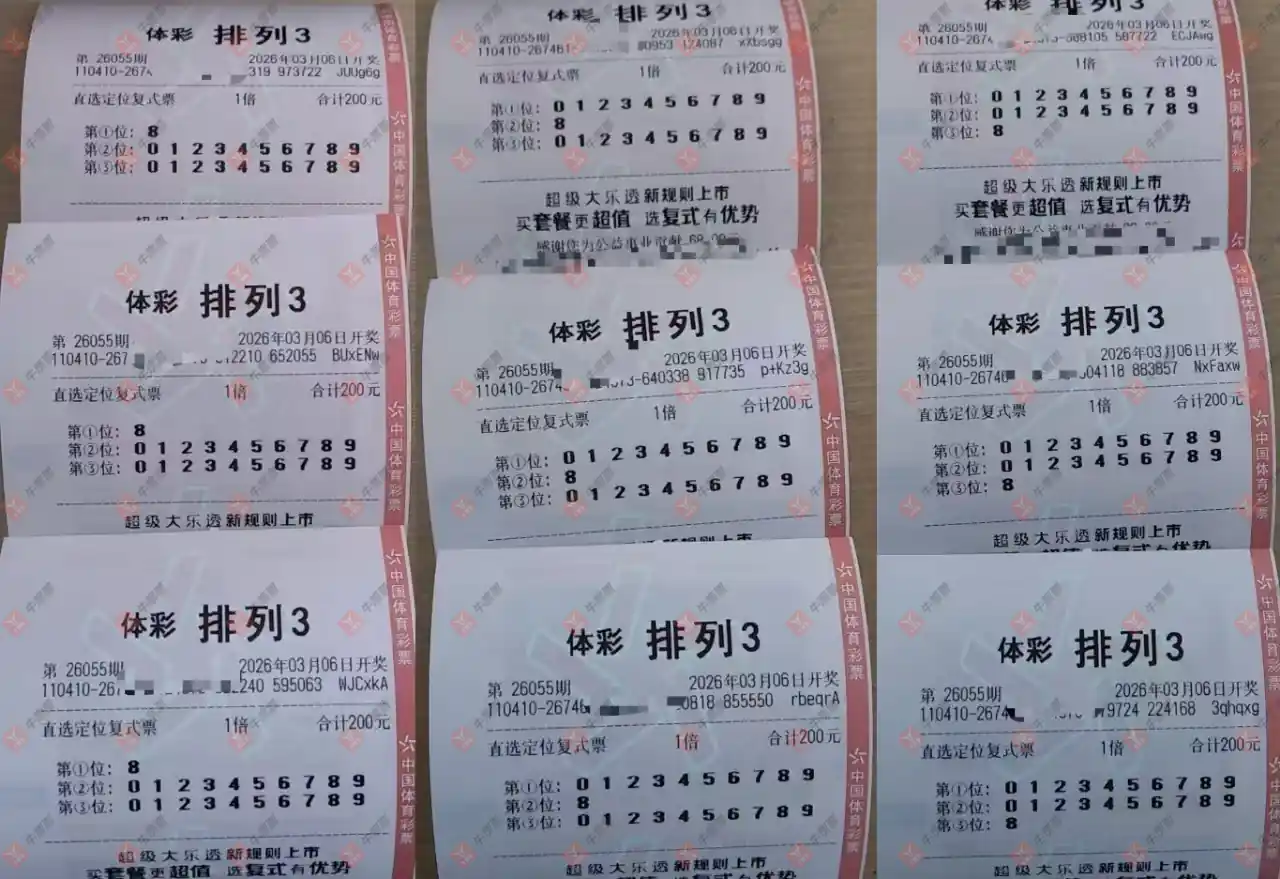 体彩 排列3
第 26055期 2026年03月06日开奖
110410-267 319 973722 JUUg6g
直选定位复式票 1倍 合计200元
第①位: 8
第②位: 0 1 2 3 4 5 6 7 8 9
第③位: 0 1 2 3 4 5 6 7 8 9
中国体育彩票
体彩 排列3
第 26055期 2026年03月06日开奖
110410-267 212210 652055 BUxENw
直选定位复式票 1倍 合计200元
第①位: 8
第②位: 0 1 2 3 4 5 6 7 8 9
第③位: 0 1 2 3 4 5 6 7 8 9
超级大乐透新规则上市
中国体育彩票
体彩 排列3
第 26055期 2026年03月06日开奖
110410-267 240 595063 WJCxkA
直选定位复式票 1倍 合计200元
第①位: 8
第②位: 0 1 2 3 4 5 6 7 8 9
第③位: 0 1 2 3 4 5 6 7 8 9
超级大乐透新规则上市
买套餐更超值 选复式有优势
中国体育彩票
体彩 排列3
第 26055期 2026年03月06日开奖
110410-267461 80953 124087 xXbsgg
直选定位复式票 1倍 合计200元
第①位: 0 1 2 3 4 5 6 7 8 9
第②位: 8
第③位: 0 1 2 3 4 5 6 7 8 9
超级大乐透新规则上市
买套餐更超值 选复式有优势
感谢您为公益事业贡献 68.00元
中国体育彩票
体彩 排列3
第 26055期 2026年03月06日开奖
110410-2674 640338 917735 p+Kz3g
直选定位复式票 1倍 合计200元
第①位: 0 1 2 3 4 5 6 7 8 9
第②位: 8
第③位: 0 1 2 3 4 5 6 7 8 9
中国体育彩票
体彩 排列3
第 26055期 2026年03月06日开奖
110410-26746 0818 855550 rbeqrA
直选定位复式票 1倍 合计200元
第①位: 0 1 2 3 4 5 6 7 8 9
第②位: 8
第③位: 0 1 2 3 4 5 6 7 8 9
超级大乐透新规则上市
中国体育彩票
体彩 排列3
第 26055期 2026年03月06日开奖
110410-2674 588105 587722 ECJAwg
直选定位复式票 1倍 合计200元
第①位: 0 1 2 3 4 5 6 7 8 9
第②位: 0 1 2 3 4 5 6 7 8 9
第③位: 8
超级大乐透新规则上市
买套餐更超值 选复式有优势
中国体育彩票
体彩 排列3
第 26055期 2026年03月06日开奖
110410-26746 504118 883857 NxFaxw
直选定位复式票 1倍 合计200元
第①位: 0 1 2 3 4 5 6 7 8 9
第②位: 0 1 2 3 4 5 6 7 8 9
第③位: 8
超级大乐透新规则上市
中国体育彩票
体彩 排列3
第 26055期 2026年03月06日开奖
110410-2674 9724 224168 3qhqxg
直选定位复式票 1倍 合计200元
第①位: 0 1 2 3 4 5 6 7 8 9
第②位: 0 1 2 3 4 5 6 7 8 9
第③位: 8
超级大乐透新规则上市
中国体育彩票